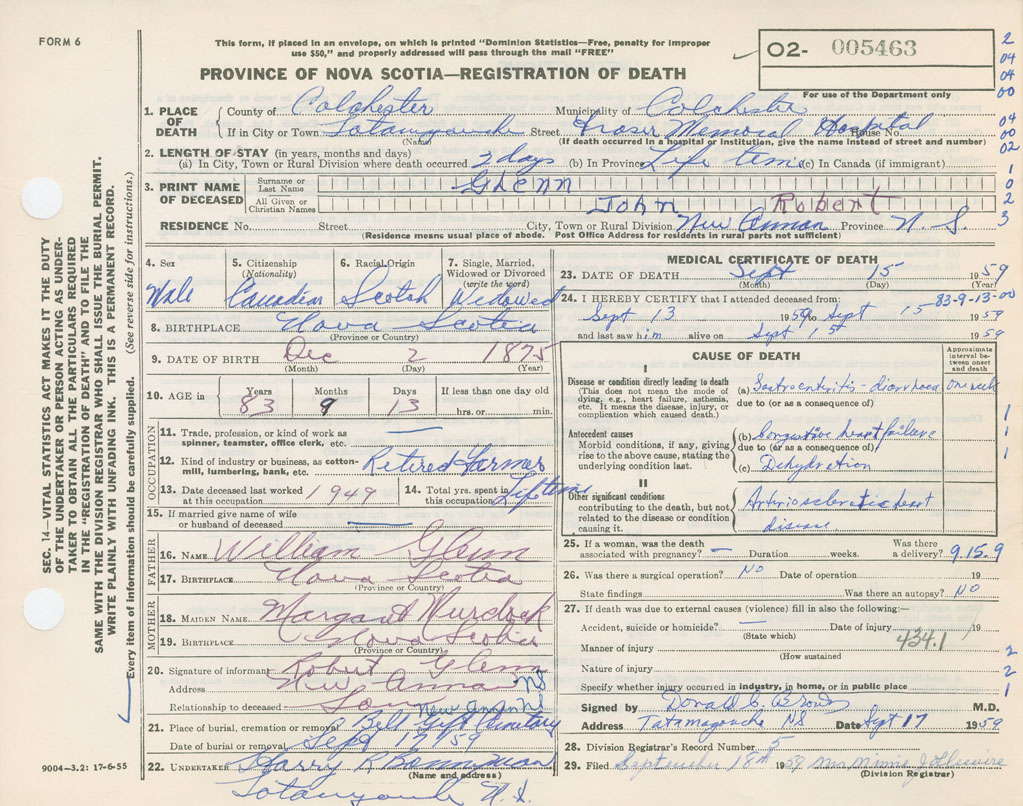 FORM 6
This form, if placed in an envelope, on which is printed "Dominion Statistics—Free, penalty for improper
use $50," and properly addressed will pass through the mail "FREE"
PROVINCE OF NOVA SCOTIA—REGISTRATION OF DEATH
O2- 005463
For use of the Department only
2
04
04
00
04
00
02
1
0
2
3
1. PLACE OF DEATH
County of Colchester Municipality of Colchester
If in City or Town Street Fraser Memorial Hospital House No.
(Name) (If death occurred in a hospital or institution, give the name instead of street and number)
2. LENGTH OF STAY (in years, months and days)
(a) In City, Town or Rural Division where death occurred 2 days (b) In Province Life time (c) In Canada (if immigrant)
3. PRINT NAME OF DECEASED
Surname or Last Name GLENN
All Given or Christian Names John Robert
RESIDENCE No. Street City, Town or Rural Division New Annan Province N.S.
(Residence means usual place of abode. Post Office Address for residents in rural parts not sufficient)
4. Sex
Male
5. Citizenship
(Nationality)
Canadian
6. Racial Origin
Scotch
7. Single, Married,
Widowed or Divorced
(write the word)
Widowed
8. BIRTHPLACE Nova Scotia
(Province or Country)
9. DATE OF BIRTH Dec 2 1875
(Month) (Day) (Year)
10. AGE in
Years Months Days If less than one day old
83 9 13 hrs. or min.
OCCUPATION
11. Trade, profession, or kind of work as
spinner, teamster, office clerk, etc. —
12. Kind of industry or business, as cotton-
mill, lumbering, bank, etc. Retired Farmer
13. Date deceased last worked
at this occupation 1949
14. Total yrs. spent in
this occupation Lifetime
15. If married give name of wife
or husband of deceased —
FATHER
16. NAME William Glenn
17. BIRTHPLACE Nova Scotia
(Province or Country)
MOTHER
18. MAIDEN NAME Margaret Murdock
19. BIRTHPLACE Nova Scotia
(Province or Country)
20. Signature of informant Robert Glenn
Address New Annan NS
Relationship to deceased Son
New Annan NS
21. Place of burial, cremation or removal Bell Gift Cemetary
Date of burial or removal Sept 17/59
22. UNDERTAKER Harry R
(Name and address)
N.S.
MEDICAL CERTIFICATE OF DEATH
23. DATE OF DEATH Sept 15 1959
(Month) (Day) (Year)
24. I HEREBY CERTIFY that I attended deceased from: 83-9-13-00
Sept 13 1959 to Sept 15 1959
and last saw him alive on Sept 15 1959
CAUSE OF DEATH
Approximate
interval be-
tween onset
and death
I
Disease or condition directly leading to death
(This does not mean the mode of
dying, e.g., heart failure, asthenia,
etc. It means the disease, injury, or
complication which caused death.)
(a) Gastroenteritis - diarrhoea one week
due to (or as a consequence of)
Antecedent causes
Morbid conditions, if any, giving
rise to the above cause, stating the
underlying condition last.
(b) Congestive heart failure
due to (or as a consequence of)
(c) Dehydration
II
Other significant conditions
contributing to the death, but not
related to the disease or condition
causing it.
Arteriosclerotic heart
disease
1
1
1
25. If a woman, was the death
associated with pregnancy? — Duration weeks. Was there
a delivery? 9.15.9
26. Was there a surgical operation? NO Date of operation 19
State findings Was there an autopsy? NO
27. If death was due to external causes (violence) fill in also the following:—
Accident, suicide or homicide? — Date of injury 19
(State which)
434.1
Manner of injury
(How sustained
Nature of injury
Specify whether injury occurred in industry, in home, or in public place
2
2
1
Signed by Donald C. Brown M.D.
Address Tatamagouche NS Date Sept 17 1959
28. Division Registrar's Record Number 5
29. Filed September 18th 1959 Mrs Minnie
(Division Registrar)
9004-3.2: 17-6-55
SEC. 14—VITAL STATISTICS ACT MAKES IT THE DUTY
OF THE UNDERTAKER OR PERSON ACTING AS UNDER-
TAKER TO OBTAIN ALL THE PARTICULARS REQUIRED
IN THE "REGISTRATION OF DEATH" AND TO FILE THE
SAME WITH THE DIVISION REGISTRAR WHO SHALL ISSUE THE BURIAL PERMIT.
WRITE PLAINLY WITH UNFADING INK. THIS IS A PERMANENT RECORD.
Every item of information should be carefully supplied. (See reverse side for instructions.)